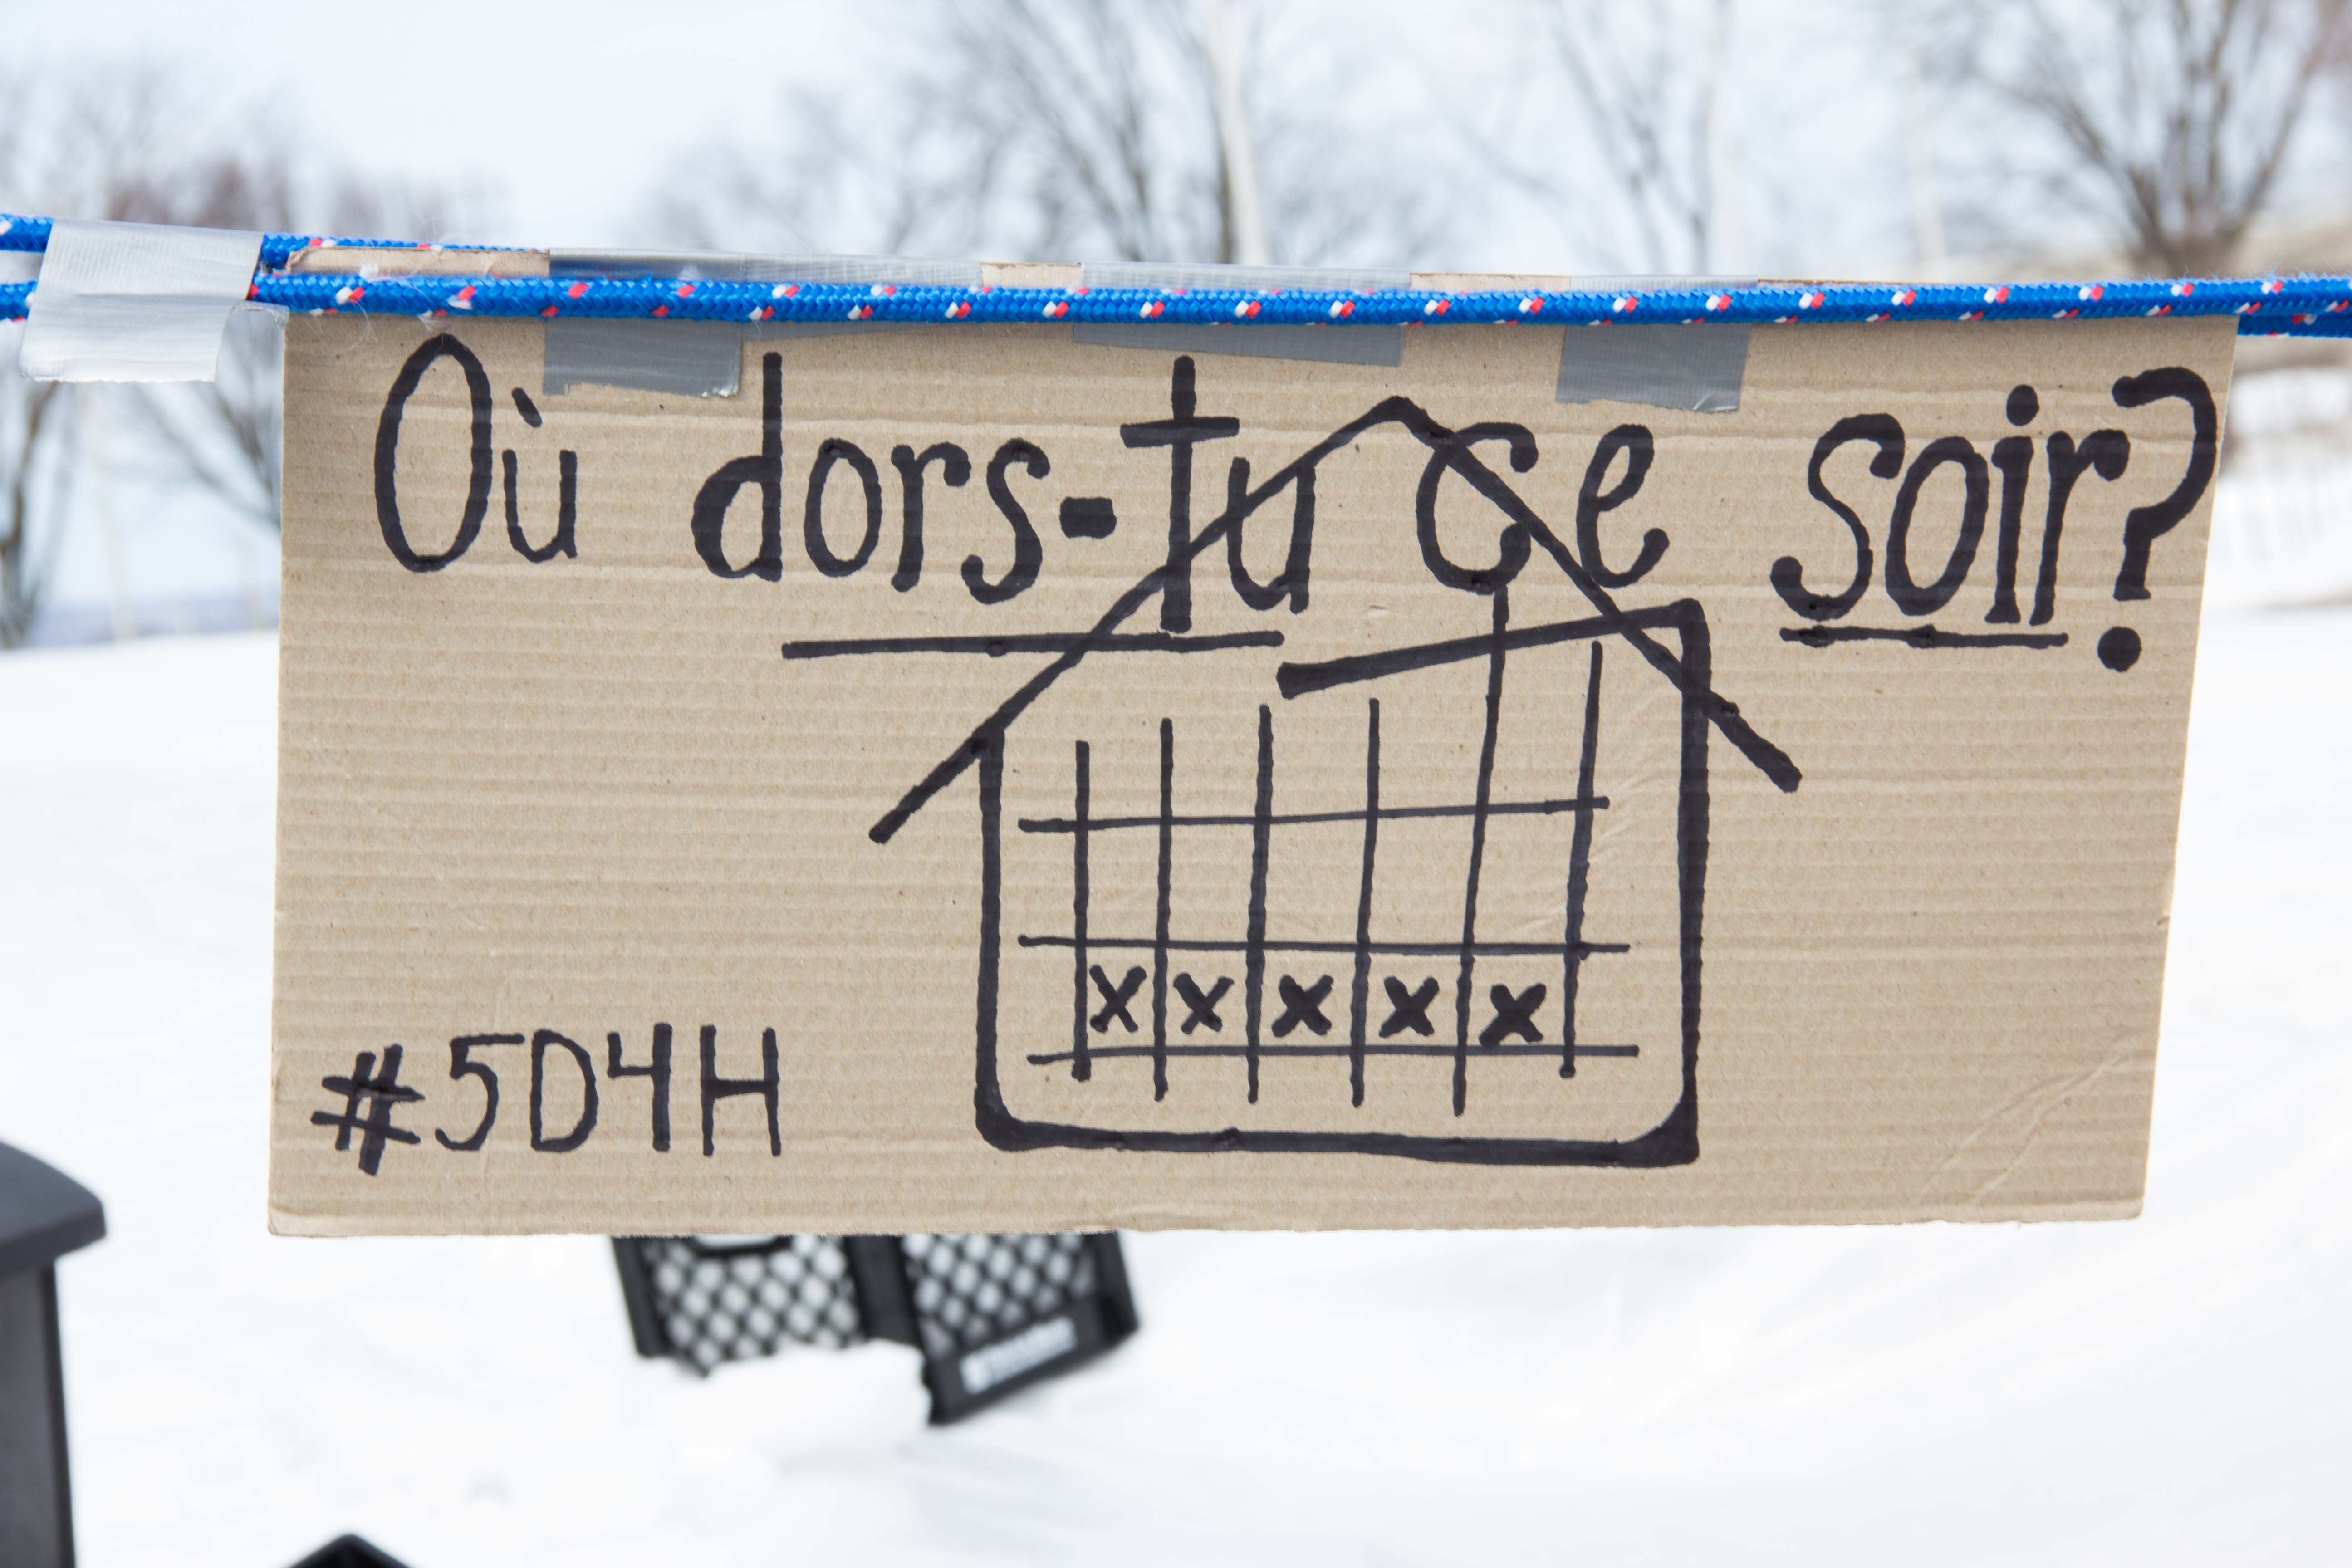 Où dors-tu ce soir?
x x x x x
#5D4H